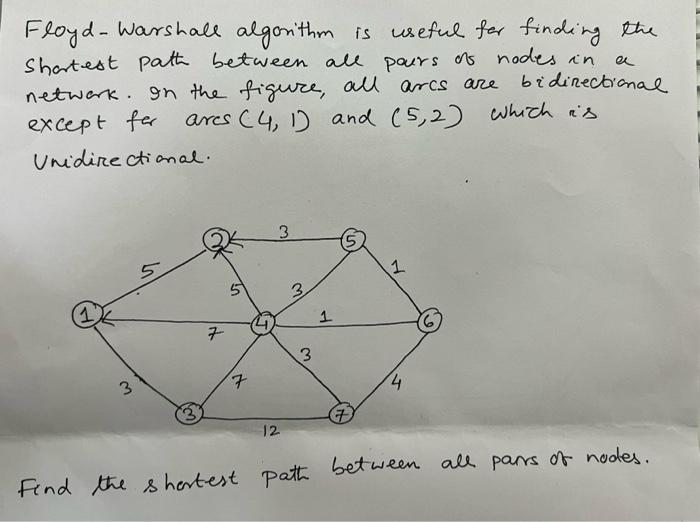 Floyd-Warshall algorithm is useful for finding the
Shortest path between all pairs of nodes in a
network. In the figure, all arcs are bidirectional
except for arcs (4, 1) and (5,2) which is
Unidirectional.
3
2
5
5
1
5
3
1
4
1
6
7
3
3
7
4
3
7
12
Find the shortest path between all pairs of nodes.